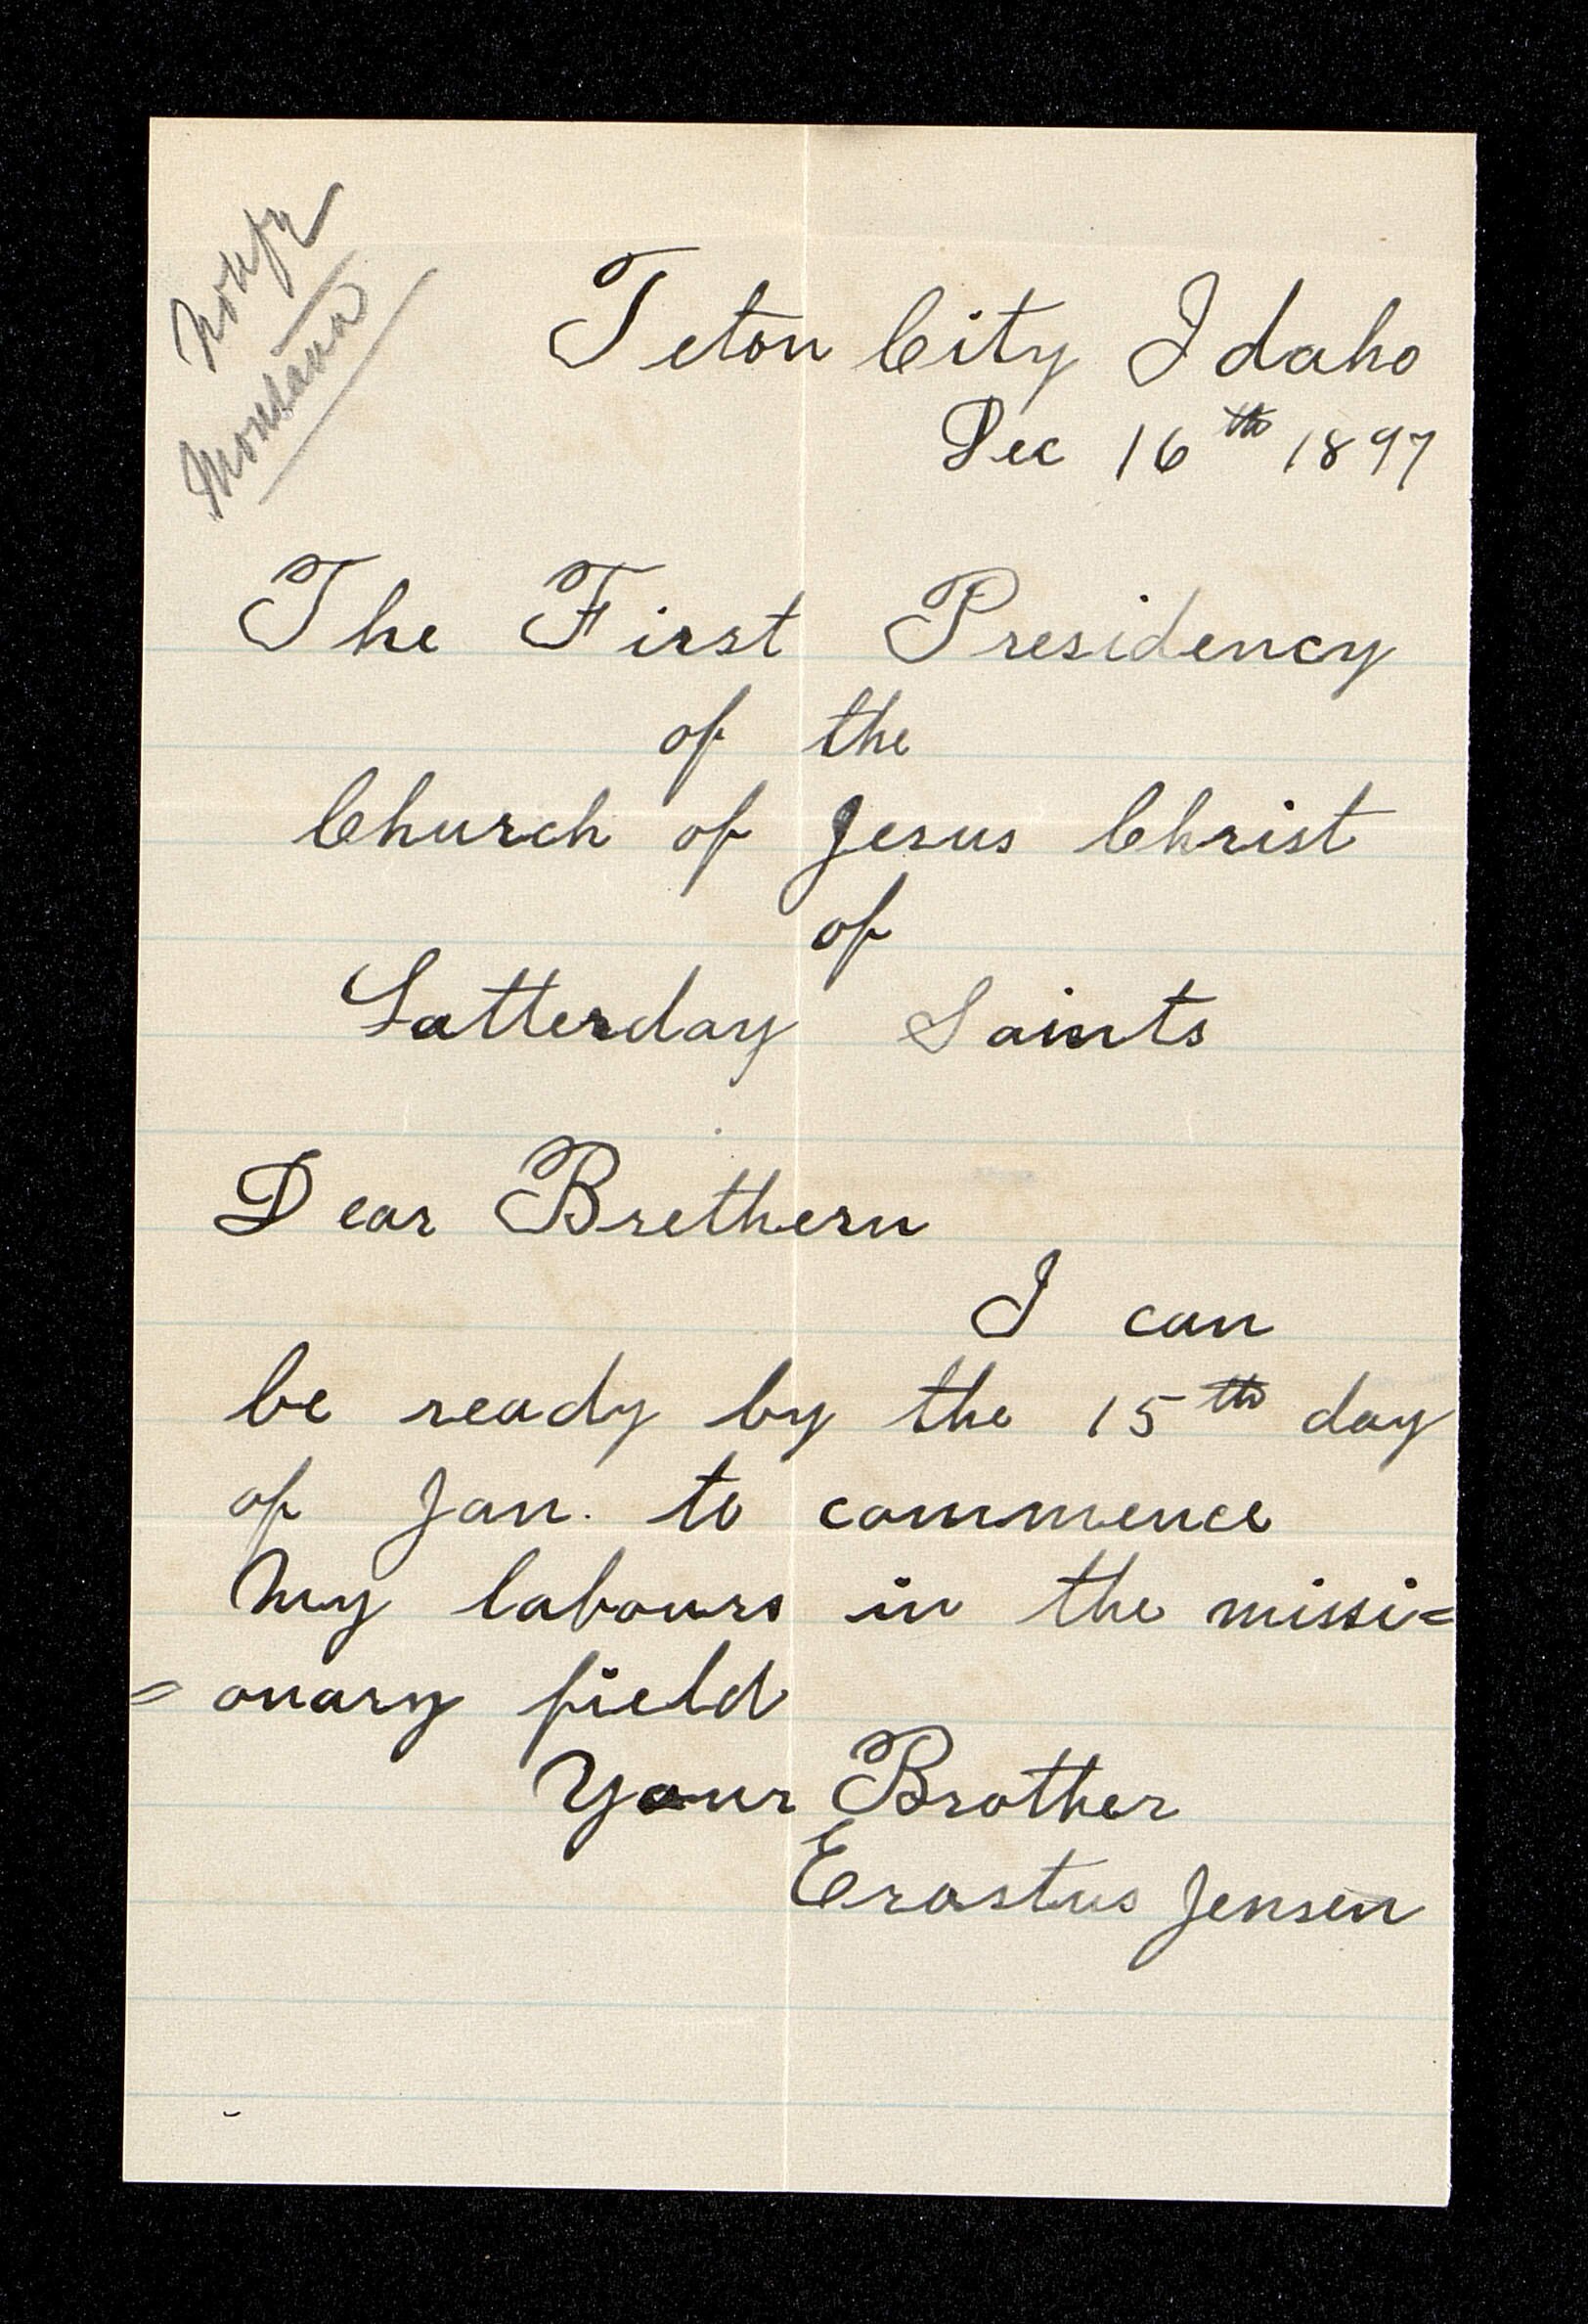 Notify
Montana
Teton City Idaho
Dec 16th 1897
The First Presidency
of the
Church of Jesus Christ
of
Latterday Saints
Dear Brethern
I can
be ready by the 15th day
of Jan. to commence
My labours in the missi=
=onary field
Your Brother
Erastus Jensen